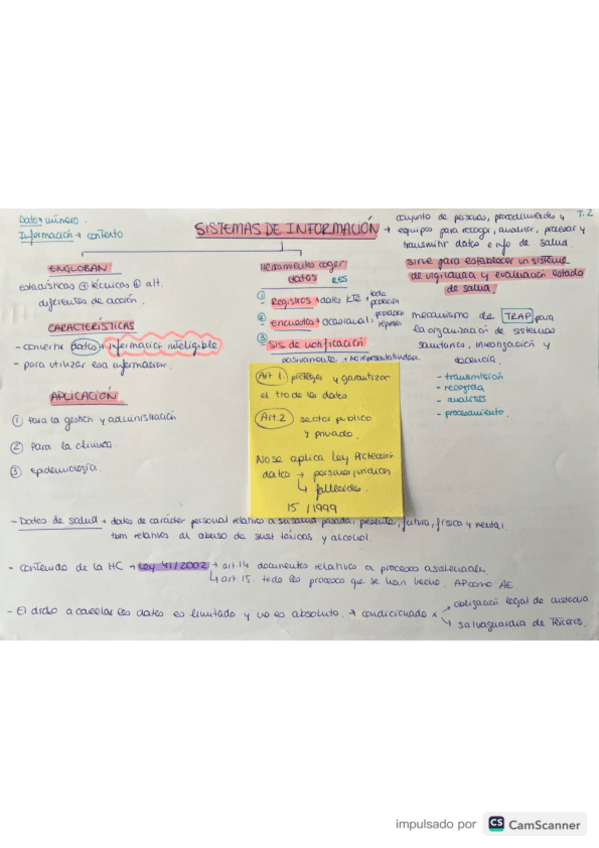 Dato → número.
Información → contexto
T.2
SISTEMAS DE INFORMACIÓN →
conjunto de personas, procedimientos y
equipos para recoger, analizar, procesar y
transmitir datos e info de salud.
sirve para establecer un sistema
de vigilancia y evaluación estado
de salud.
mecanismo de TRAP para
la organización de sistemas
sanitarios, investigación y
docencia.
- transmisión
- recogida
- análisis
- procesamiento.
ENGLOBAN
estadísticas ⊕ técnicas ⊕ alt.
diferentes de acción.
CARACTERÍSTICAS
- convertir datos → información inteligible
- para utilizar esa información.
APLICACIÓN
① Para la gestión y administración
② Para la clínica.
③ epidemiología.
Herramienta coger
datos RES
① - Registros → datos KTE → toda población
② - Encuestas → ocasional,
③ Sis de notificación
pasivamente → no representatividad
Art 1. proteger y garantizar
el tto de los datos
Art.2 sector público
y privado.
No se aplica Ley Protección
datos → personas jurídicas
↳ fallecidos.
15/1999
- Datos de salud → datos de carácter personal relativo a su salud pasada, presente, futura, física y mental.
tam relativos al abuso de sust tóxicas y alcohol.
- contenido de la HC → Ley 41/2002 → art.14 documentos relativos a procesos asistenciales
↳ art 15. todo los procesos que se han hecho. AP como AE
- El dcho a cancelar los datos es limitado y no es absoluto. → condicionado
obligación legal de custodia
salvaguardia de Terceros.
impulsado por CS CamScanner